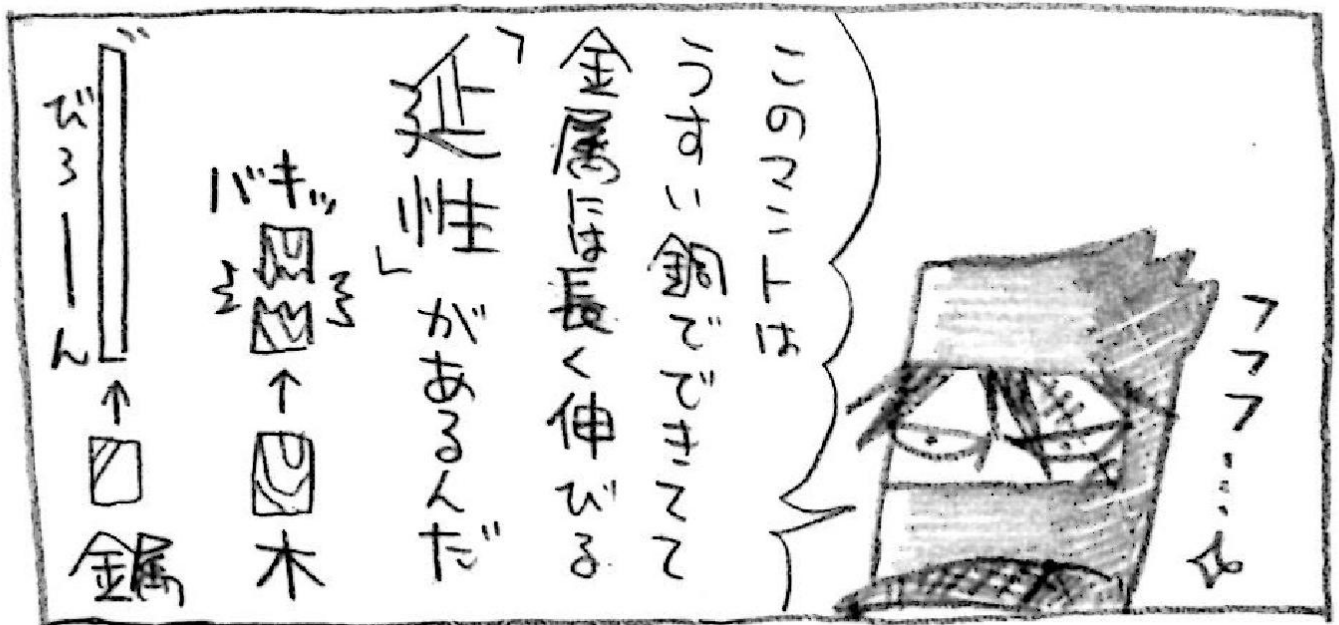 フフフ……
このマントは
うすい銅でできてて
金属には長く伸びる
「延性」があるんだ
バキッ
木
びろーん
金属